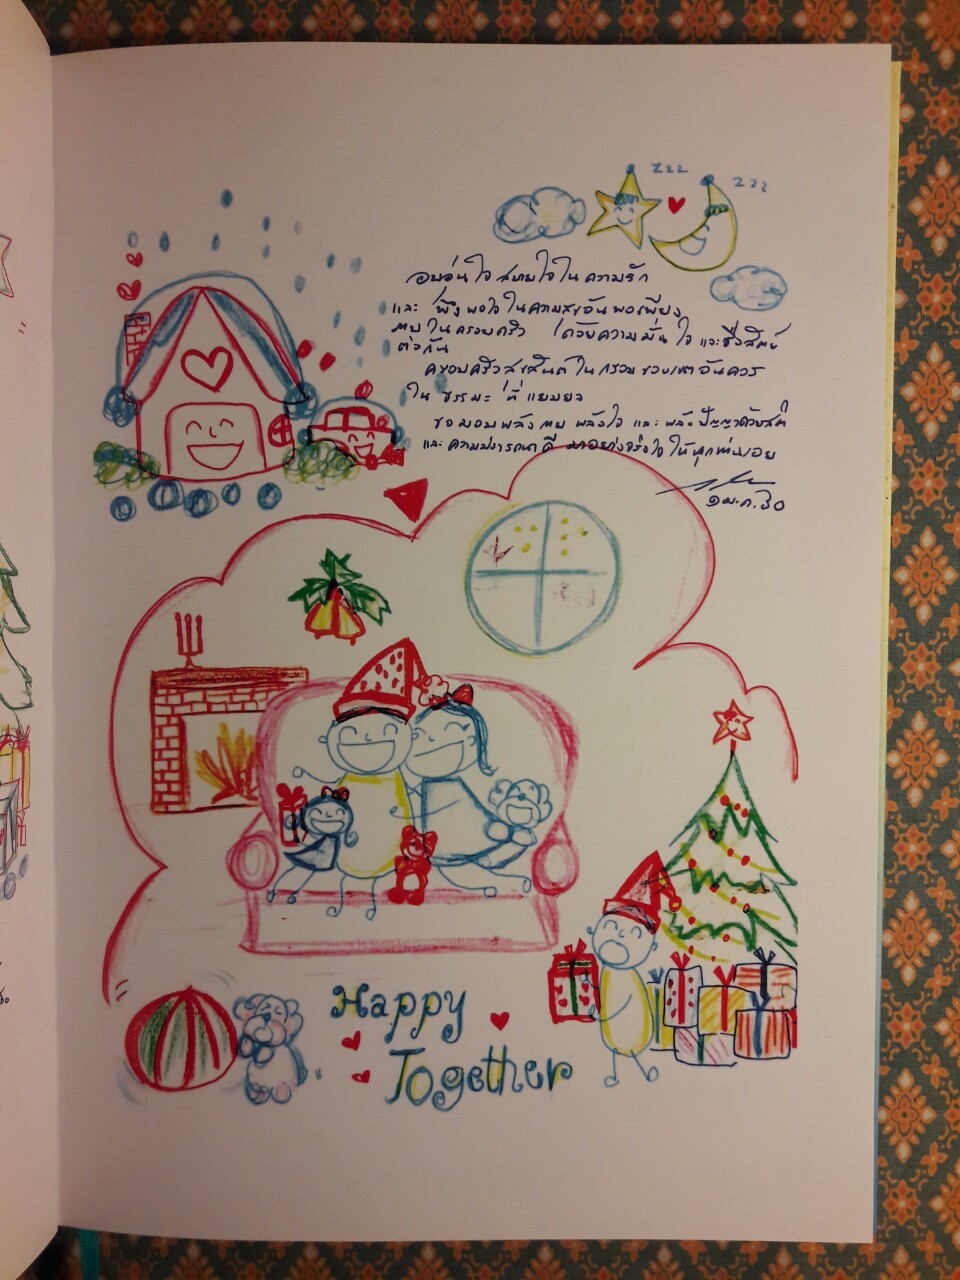 zzz
zzz
อบอุ่นใจ สบายใจใน ความรัก
และ พึงพอใจในความสุขอันพอเพียง
ตน ในครอบครัว ด้วยความมั่นใจ และซื่อสัตย์
ต่อกัน
ครอบครัวสุขสันต์ ในกรอบ ขอบเขตอันควร
ใน ธรรมะ ที่ แยบยล
ขอมอบพลังกาย พลังใจ และ พลังปัญญาด้วยสติ
และ ความปรารถนาดี มาอย่างจริงใจ ให้ทุกท่านเอย
๑ ม.ค. ๖๐
Happy
Together